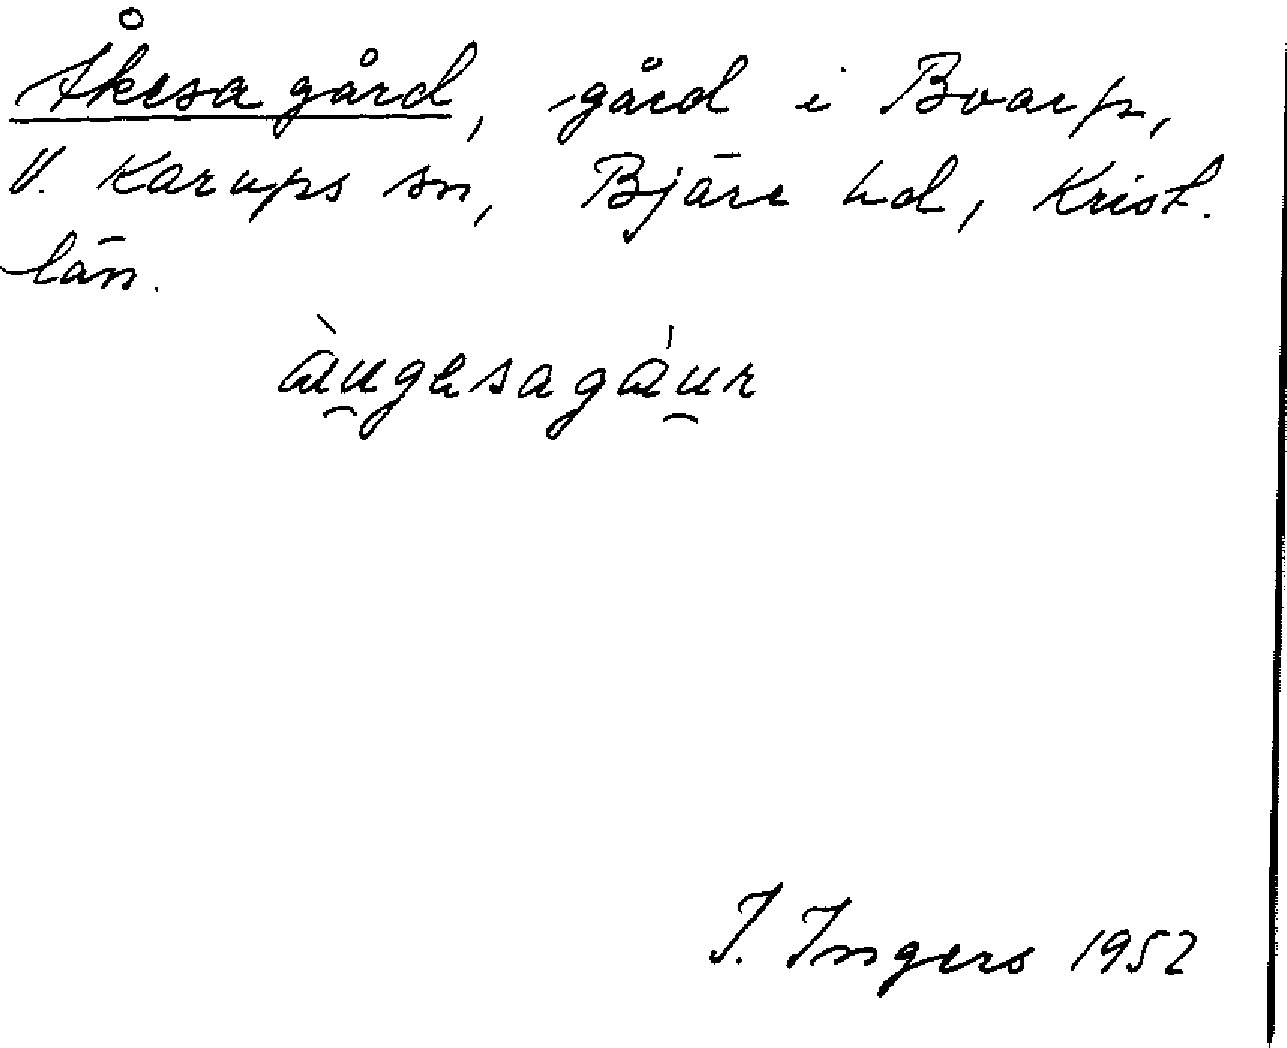 Åkesagård, gård i Boarp,
V. Karups sn, Bjäre hd, Krist.
län.
æ̀u̯gesagǽu̯r
I. Ingers 1952